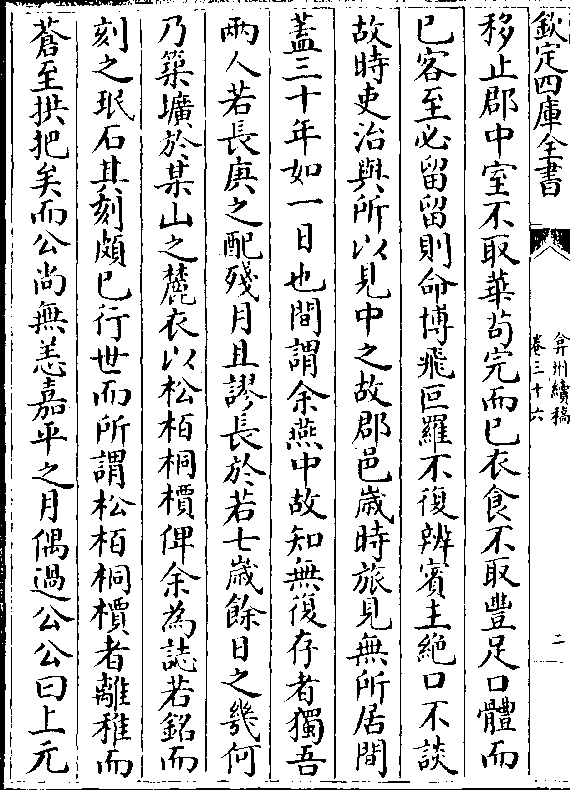 欽定四庫全書
弇州續稿
卷三十六
二
移止郡中室不取華茍完而已衣食不取豐足口體而
已客至必留留則命博飛叵羅不復辨賓主絕口不談
故時吏治與所以見中之故郡邑歳時旅見無所居間
蓋三十年如一日也間謂余燕中故知無復存者獨吾
兩人若長庚之配殘月且謬長於若七歳餘日之幾何
乃築壙於某山之麓衣以松栢桐檟俾余為誌若銘而
刻之珉石其刻頗已行世而所謂松栢桐檟者離稚而
蒼至拱把矣而公尚無恙嘉平之月偶過公公曰上元